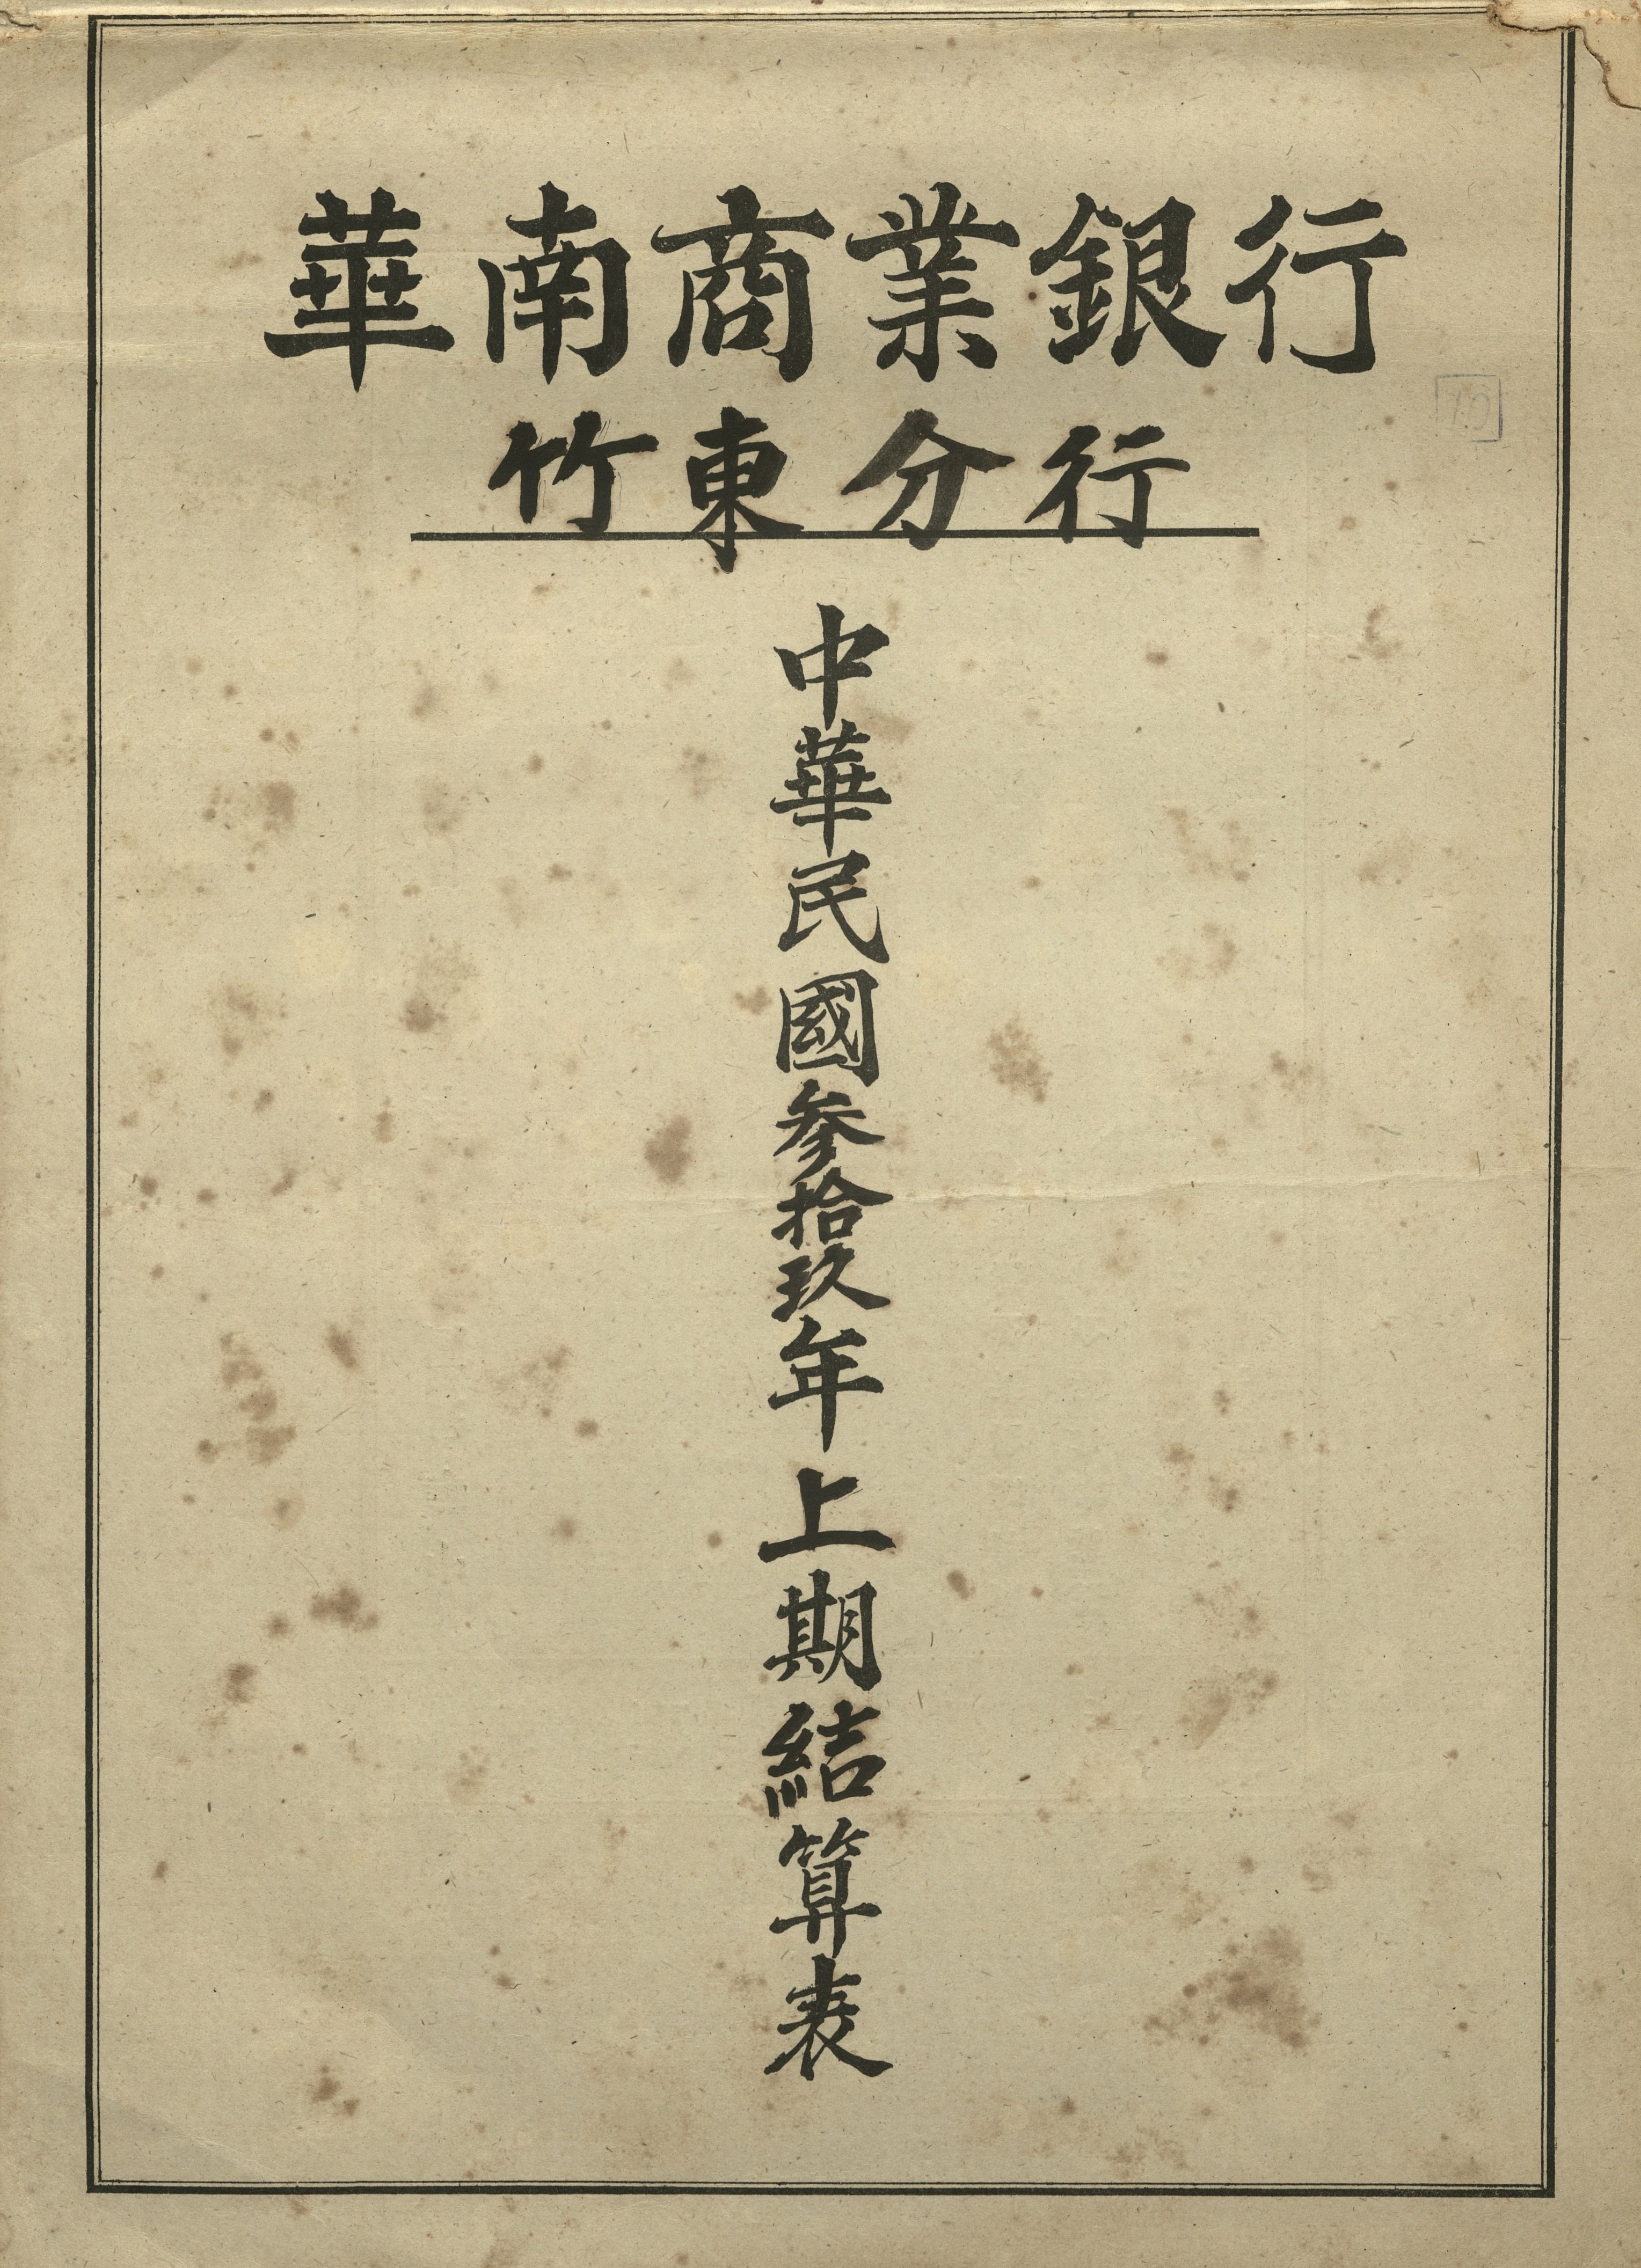 華南商業銀行
竹東分行
中華民國参拾玖年上期結算表